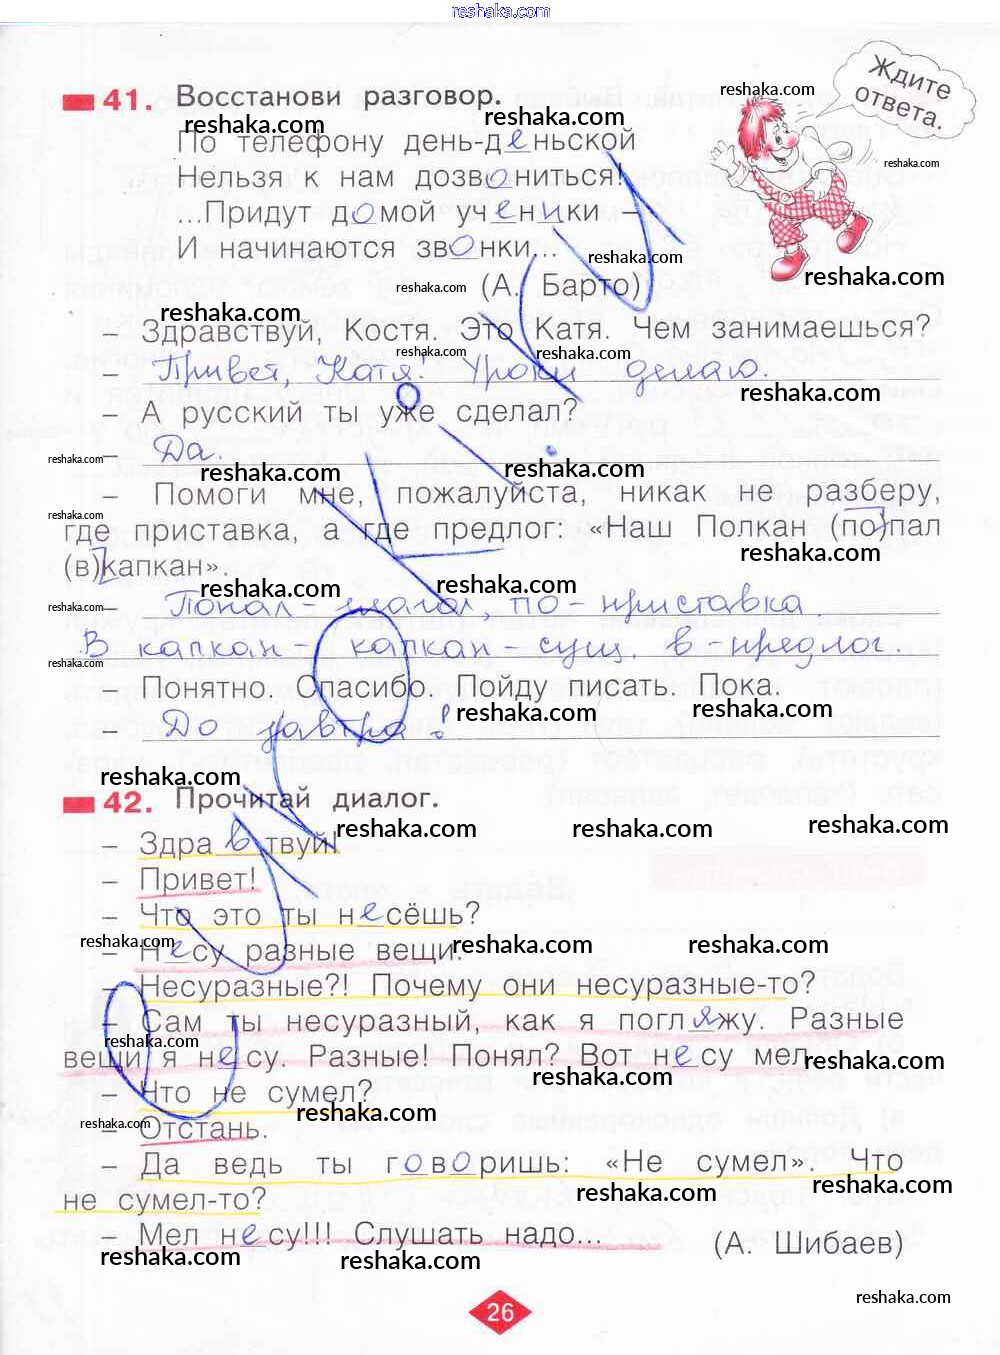 reshaka.com
41. Восстанови разговор.
Ждите
ответа.
По телефону день-деньской
Нельзя к нам дозвониться!
...Придут домой ученики –
И начинаются звонки...
(А. Барто)
– Здравствуй, Костя. Это Катя. Чем занимаешься?
– Привет, Катя! Уроки делаю.
– А русский ты уже сделал?
– Да.
– Помоги мне, пожалуйста, никак не разберу,
где приставка, а где предлог: «Наш Полкан (по)пал
(в)капкан».
– Попал – глагол, по – приставка.
В капкан – капкан – сущ. в – предлог
– Понятно. Спасибо. Пойду писать. Пока.
– До завтра!
42. Прочитай диалог.
– Здравствуй!
– Привет!
– Что это ты несёшь?
– Несу разные вещи.
– Несуразные?! Почему они несуразные-то?
– Сам ты несуразный, как я погляжу. Разные
вещи я несу. Разные! Понял? Вот несу мел.
– Что не сумел?
– Отстань.
– Да ведь ты говоришь: «Не сумел». Что
не сумел-то?
– Мел несу!!! Слушать надо...
(А. Шибаев)
26
reshaka.com